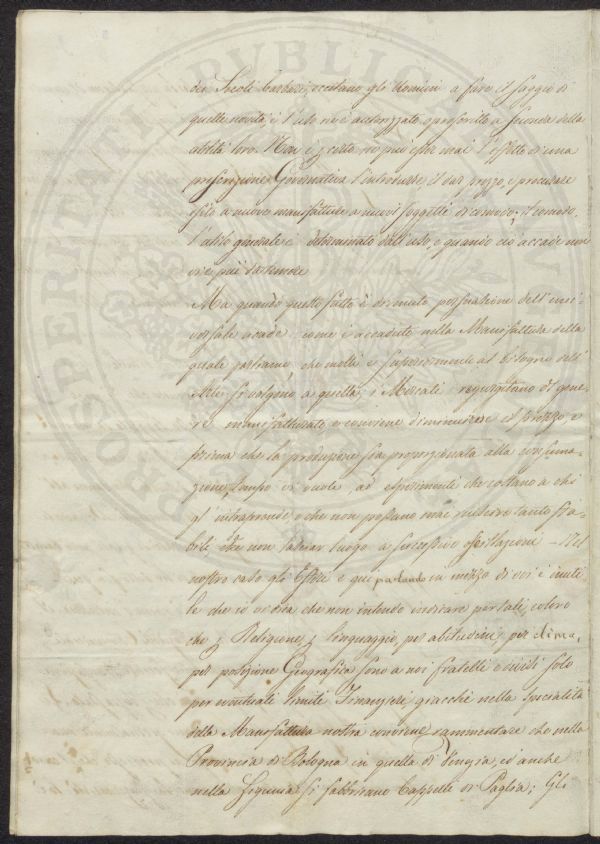 dei Secoli barbari, eccitano gli Uomini a fare il saggio di
quelle novità, e l'uso ne è autorizzato, o proscritto a seconda della
utilità loro. Non è certo nè può esser mai l'effetto di una
prescrizione Governativa l'introdurre, il dar prezzo, e procurare
esito a nuove manifatture a nuovi soggetti di comodo; il comodo,
l'utile generale è determinato dall'uso, e quando ciò accade non
vi è più da temere
Ma quando questo fatto è divenuto persuasione dell'uni-
versale accade come è accaduto nella Manifattura della
quale parliamo che molti e superiormente al bisogno dell'
Arte si volgono a quella; i Mercati rigurgitano di gene-
ri manifatturati e conviene diminuirne il prezzo e
prima che la produzione sia proporzionata alla consuma-
zione, tempo vi vuole ad esperimenti che costano a chi
gl'intraprende e che non possono mai riuscire tanto sta-
bili da non lasciar luogo a successive oscillazioni — Nel
nostro caso gli Esteri e qui parlando in mezzo di voi è inuti-
le che io vi dica che non intendo indicare per tali coloro
che per Religione, per linguaggio, per abitudini, per clima,
per posizione Geografica sono a noi fratelli e divisi solo
per eventuali limiti Finanzieri giacchè nella specialità
della Manifattura nostra conviene rammentare che nella
Provincia di Bologna in quella di Venezia, ed anche
nella Liguria si fabbricano Cappelli di Paglia; Gli
PROSPERITATI PVBLICAE